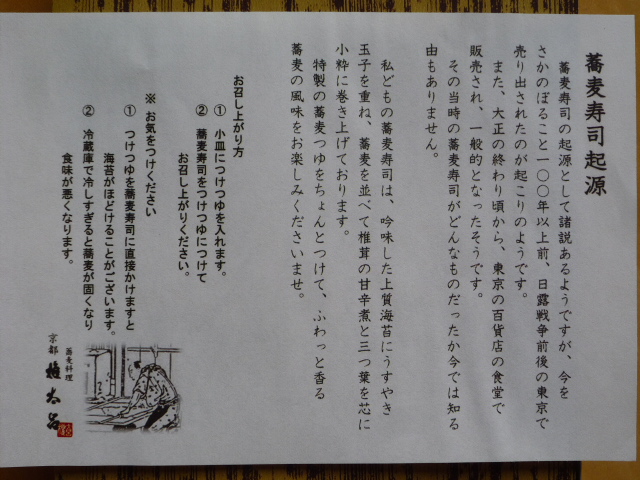 蕎麦寿司起源
蕎麦寿司の起源として諸説あるようですが、今を
さかのぼること一〇〇年以上前、日露戦争前後の東京で
売り出されたのが起こりのようです。
また、大正の終わり頃から、東京の百貨店の食堂で
販売され、一般的となったそうです。
その当時の蕎麦寿司がどんなものだったか今では知る
由もありません。
私どもの蕎麦寿司は、吟味した上質海苔にうすやき
玉子を重ね、蕎麦を並べて椎茸の甘辛煮と三つ葉を芯に
小粋に巻き上げております。
特製の蕎麦つゆをちょんとつけて、ふわっと香る
蕎麦の風味をお楽しみくださいませ。
お召し上がり方
① 小皿につけつゆを入れます。
② 蕎麦寿司をつけつゆにつけて
お召し上がりください。
※ お気をつけください
① つけつゆを蕎麦寿司に直接かけますと
海苔がほどけることがございます。
② 冷蔵庫で冷しすぎると蕎麦が固くなり
食味が悪くなります。
蕎麦料理
京都